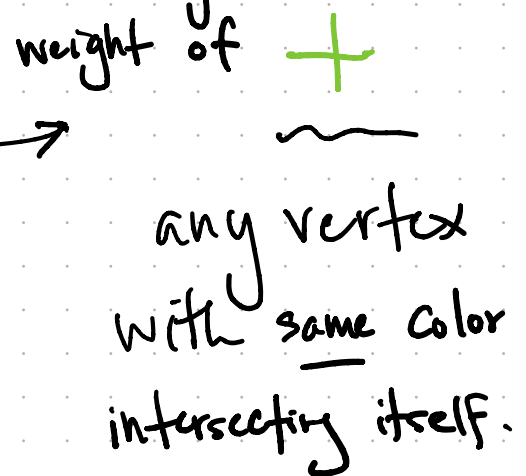 weight of
any vertex
with same color
intersecting itself.